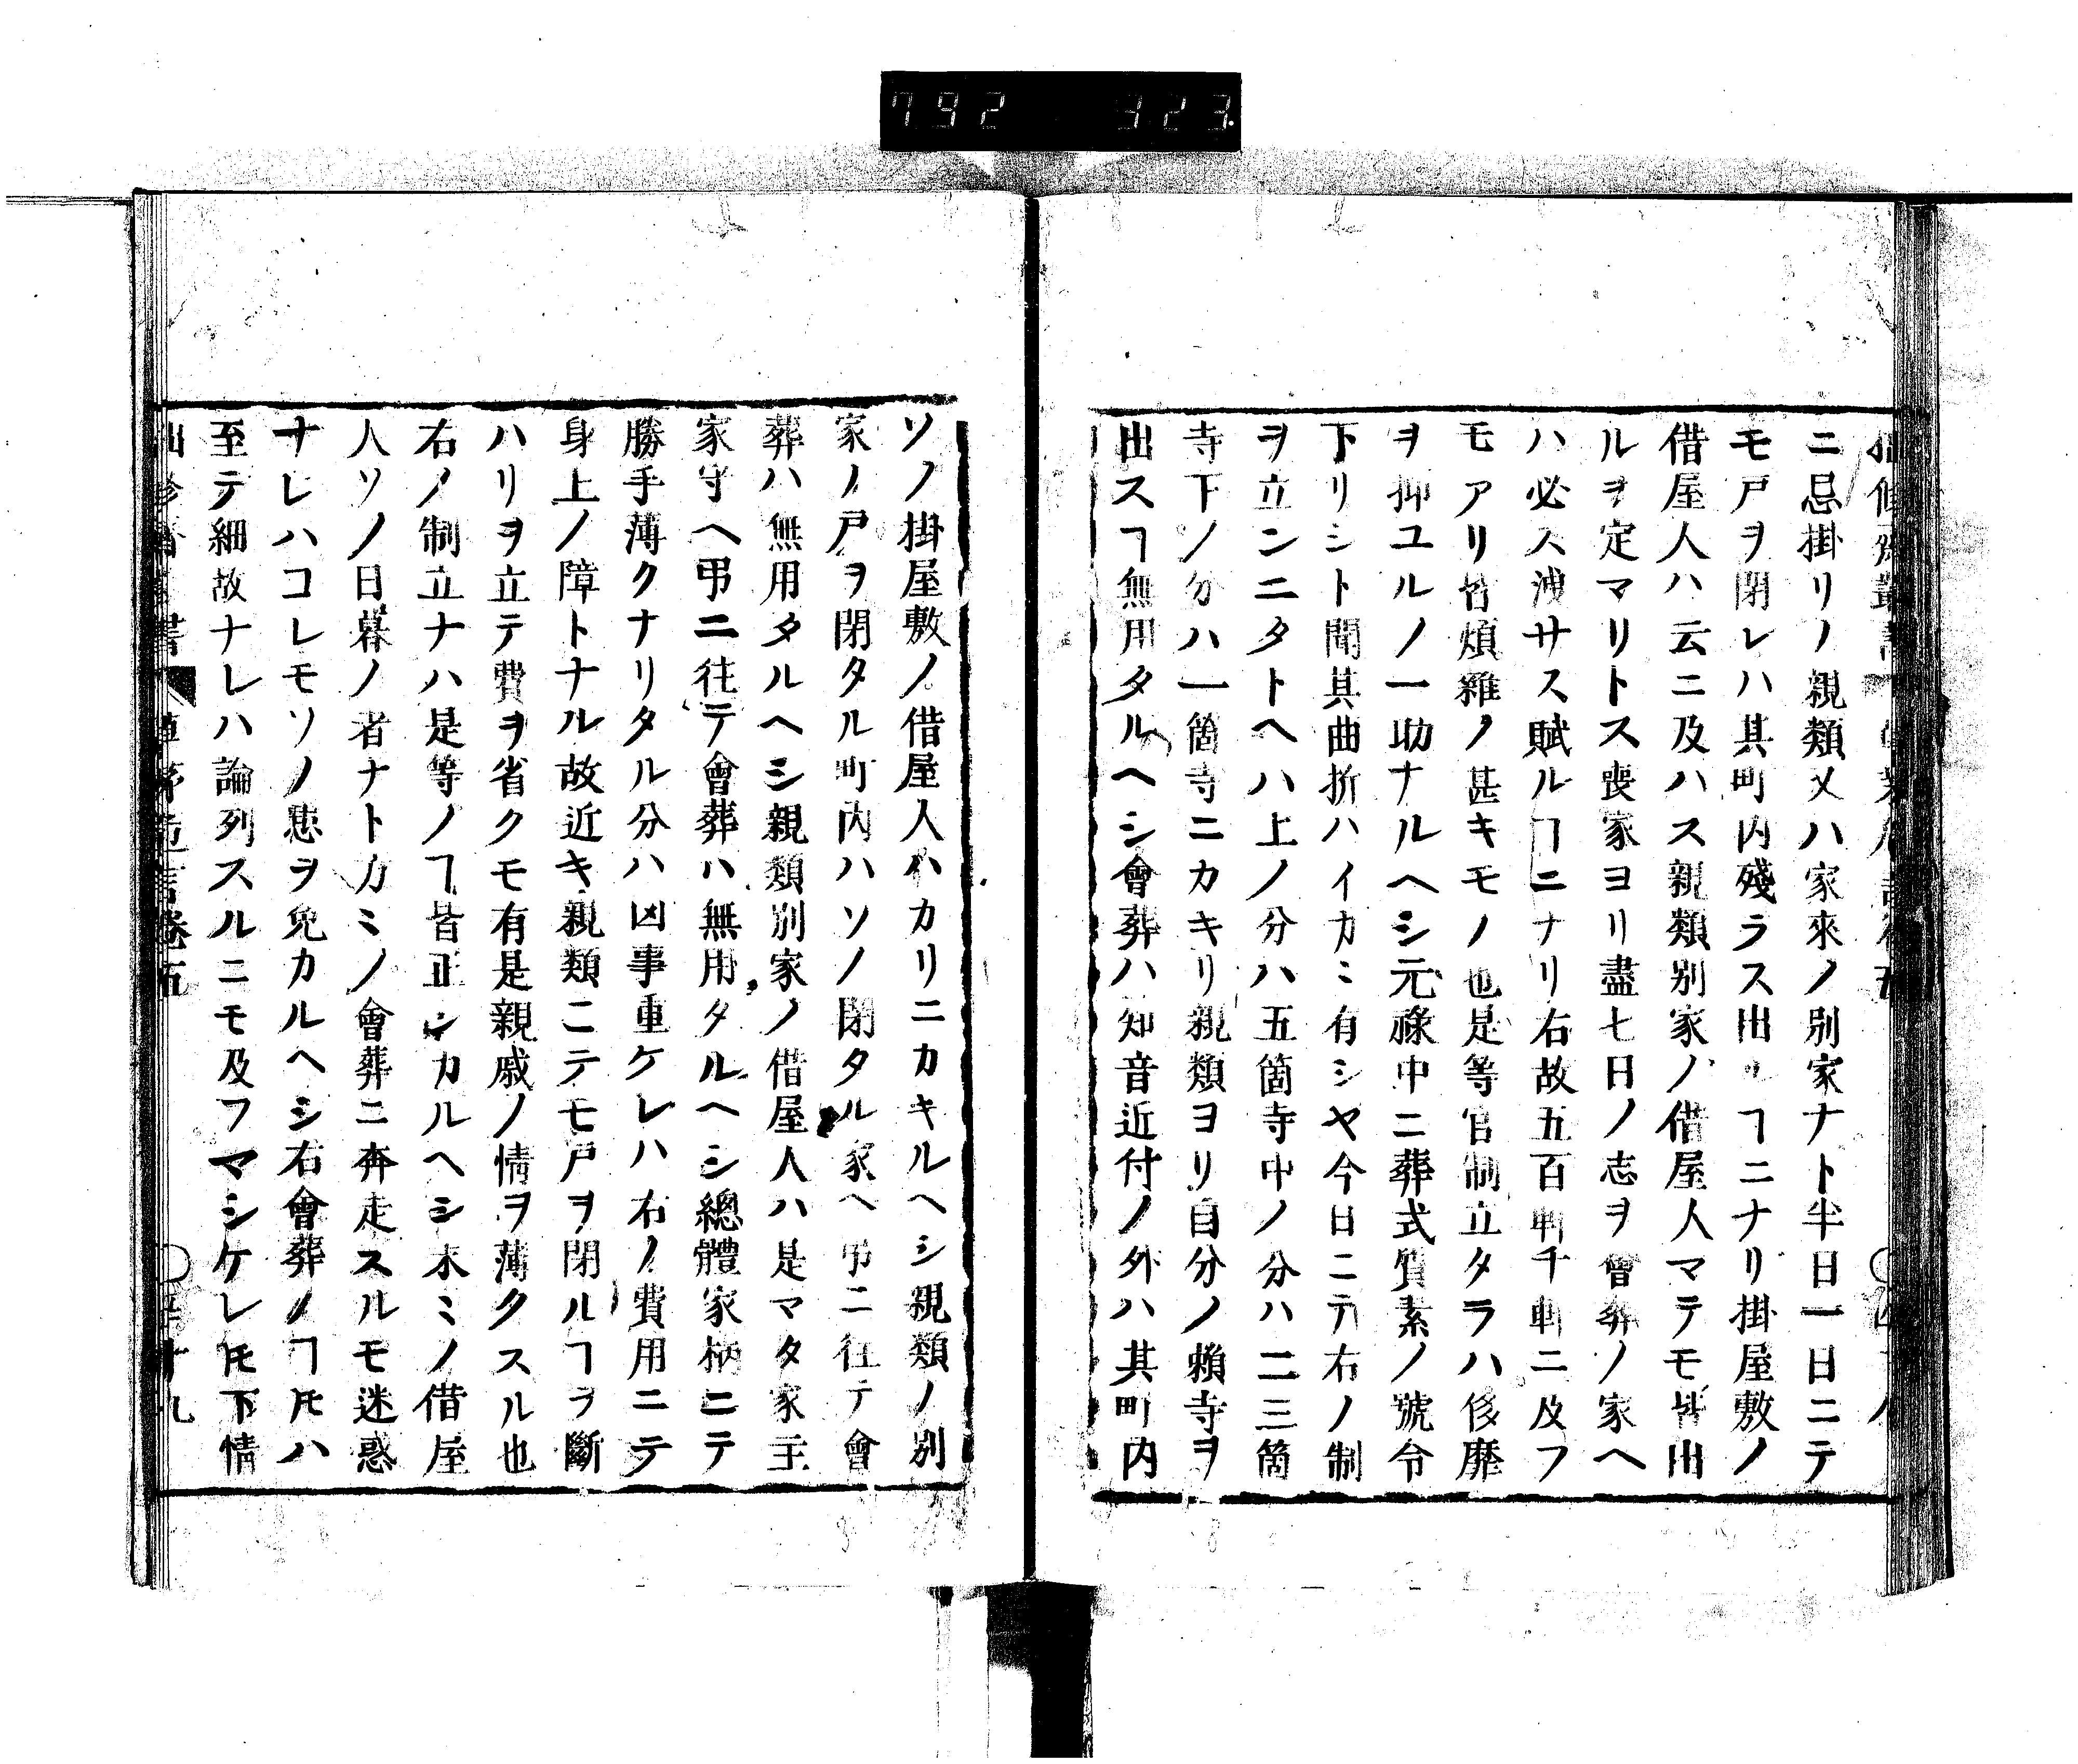 792 323
ニ忌掛リノ親類又ハ家來ノ別家ナト半日一日ニテ
モ戸ヲ閉レハ其町内殘ラス出ルヿニナリ掛屋敷ノ
借屋人ハ云ニ及ハス親類別家ノ借屋人マテモ皆出
ルヲ定マリトス喪家ヨリ盡七日ノ志ヲ會葬ノ家ヘ
ハ必ス洩サス賦ルヿニナリ右故五百軒千軒ニ及フ
モアリ皆煩雜ノ甚キモノ也是等官制立タラハ侈靡
ヲ抑ユルノ一助ナルヘシ元祿中ニ葬式質素ノ號令
下リシト聞其曲折ハイカミ有シヤ今日ニテ右ノ制
ヲ立ンニタトヘハ上ノ分ハ五箇寺中ノ分ハ二三箇
寺下ノ分ハ一箇寺ニカキリ親類ヨリ自分ノ賴寺ヲ
出スヿ無用タルヘシ會葬ハ知音近付ノ外ハ其町内
ソノ掛屋敷ノ借屋人ハカリニカキルヘシ親類ノ別
家ノ戸ヲ閉タル町内ハソノ閉タル家ヘ弔ニ往テ會
葬ハ無用タルヘシ親類別家ノ借屋人ハ是マタ家主
家守ヘ弔ニ往テ會葬ハ無用タルヘシ總體家柄ニテ
勝手薄クナリタル分ハ凶事重ケレハ右ノ費用ニテ
身上ノ障トナル故近キ親類ニテモ戸ヲ閉ルヿヲ斷
ハリヲ立テ費ヲ省クモ有是親戚ノ情ヲ薄クスル也
右ノ制立ナハ是等ノヿ皆正シカルヘシ末ミノ借屋
人ソノ日暮ノ者ナトカミノ會葬ニ奔走スルモ迷惑
ナレハコレモソノ患ヲ免カルヘシ右會葬ノヿ𪜈ハ
至テ細故ナレハ論列スルニモ及フマシケレ𪜈下情